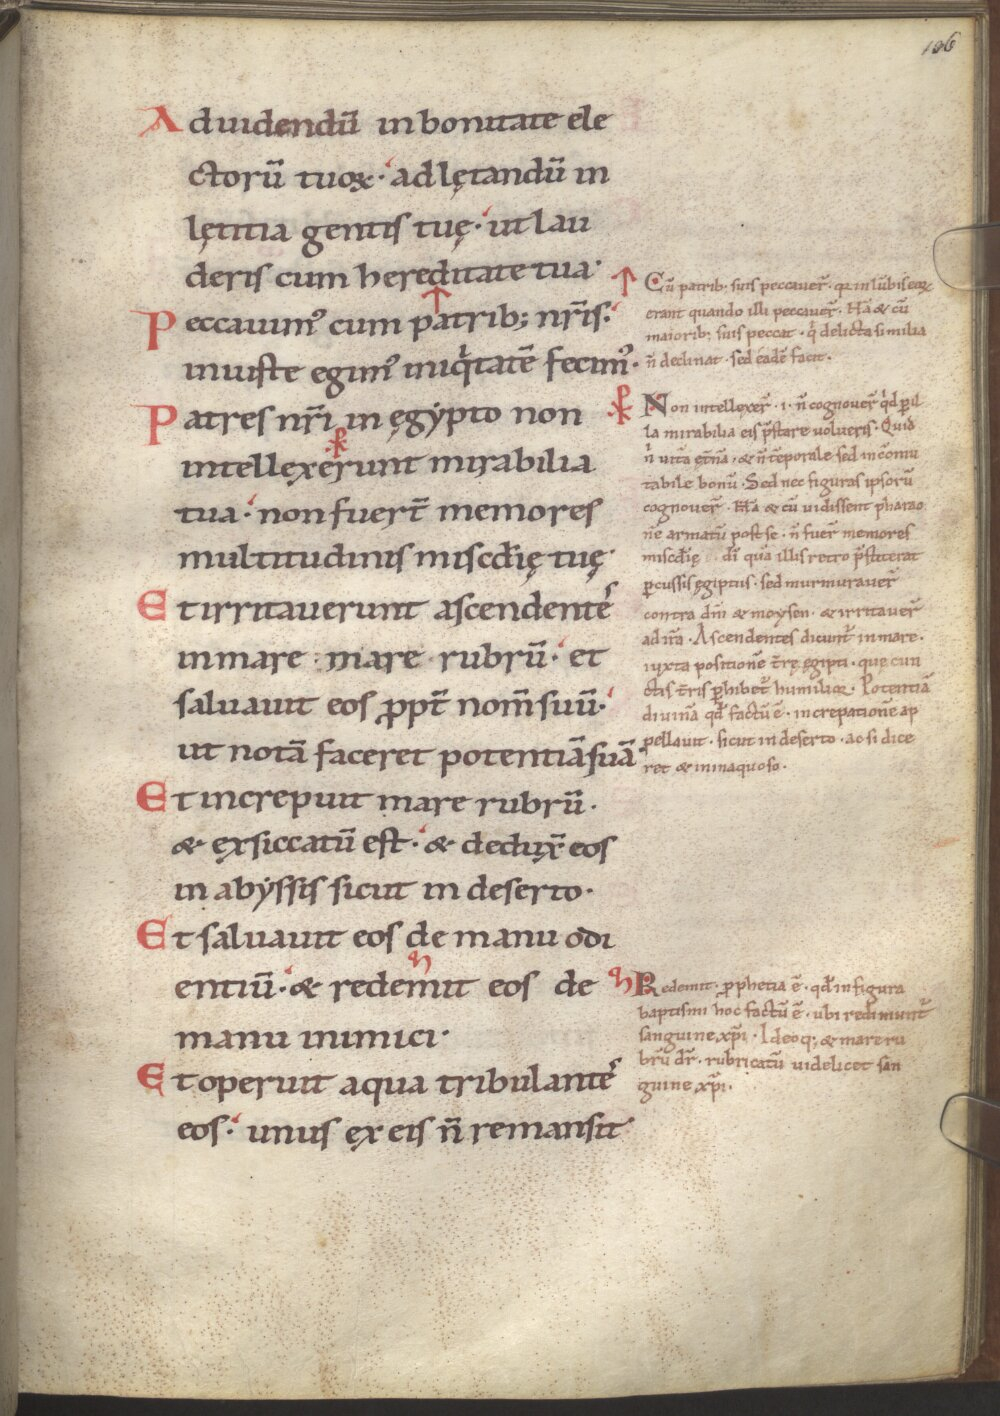 106
Ad uidendū in bonitate ele
ctorū tuoꝝ· ad lętandū in
lętitia gentis tuę· ut lau
deris cum hereditate tua·
Peccauim᾿ cum patrib; nr̄is·
iniuste egim᾿ iniq̇tatē fecim᾿·
Patres nr̄i in ęgypto non
intellexerunt mirabilia
tua· non fuer̄t memores
multitudinis miscd̄ię tuę·
Et irritauerunt ascendentē
in mare mare rubrū· et
saluauit eos ꝓpt̄ nom̄ suū·
ut notā faceret potentiā suā·
Et increpuit mare rubrū·
& exsiccatū est· & deduxͬ eos
in abyssis sicut in deserto·
Et saluauit eos de manu odi
entiū· & redemit eos de
manu inimici·
Et operuit aqua tribulantē
eos· unus ex eis n̄ remansit
Cū patrib; suis peccauer̄· qꝛ in lūbis eoꝝ
erant quando illi peccauer̄· Hā & cū
maiorib; suis peccat· q̇ delicta similia
n̄ declinat· sed eadē facit·
Non intellexer̄· i· n̄ cognouer̄ qd̄ ꝑ il
la mirabilia eis p̄stare uolueris· Quid
n̄ uita et̄na· & n̄ tēporale sed incōmu
tabile bonū· Sed nec figuras ipsorū
cognouer̄· Hā & cū uidissent pharao
nē armatū post se· n̄ fuer̄ memores
miscd̄ię dī quā illis retro p̄stiterat
ꝑcussis ęgiptiis· sed murmurauer̄
contra dn̄m & moysen· & irritauer̄
ad irā· Ascendentes dicunt̄ in mare·
iuxta positionē t̄rę ęgipti· quę cun
ctis t̄ris ꝑhibet̄ humilioꝛ· Potentiā
diuinā qd̄ factū ē· increpationē ap
pellauit· sicut in deserto· ac si dice
ret & in inaquoso·
Redemit· ꝓphetia ē· qd̄ in figura
baptismi hoc factū ē· ubi redimunt̄
sanguine xp̄i· Ideoq; & mare ru
brū dr̄· rubricatū uidelicet san
guine xp̄i·